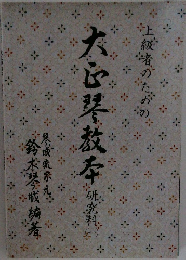 上級者のための
大正琴教本
研究科
琴城流宗家
鈴木琴城編著